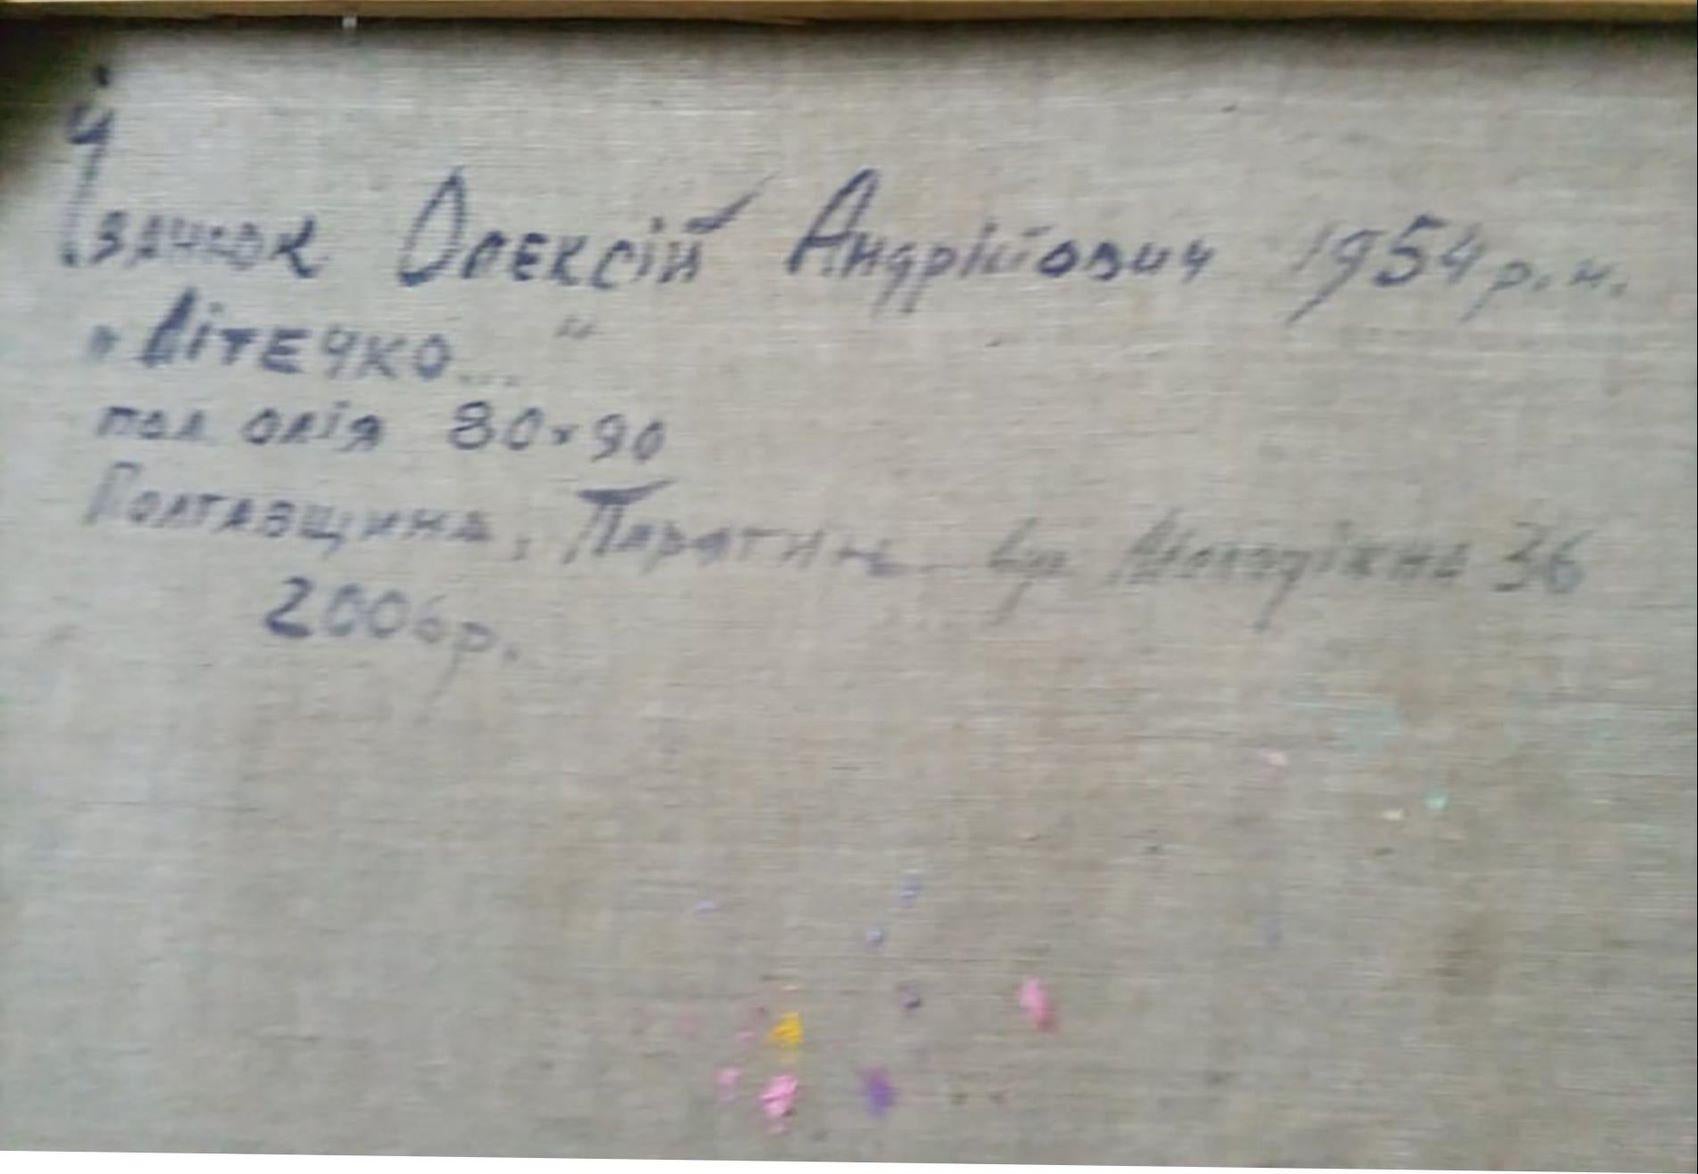 Олексій Андрійович 1954 р.н.
„Літечко..."
пол олія 80×90
Полтавщина, Пирятин вул Молодіжна 36
2006р.